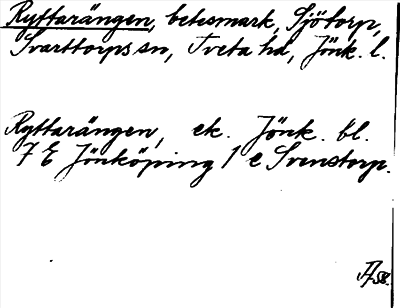 Ryttarängen, betesmark, Sjötorp,
Svarttorps sn, Tveta hd, Jönk. l.
Ryttarängen, ek. Jönk. bl.
7 E Jönköping 1 e Svenstorp.